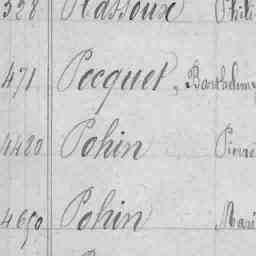 328 Massoux Phili
471 Pecquet, Barthelemy
4420 Pohin Pierre
4650 Pohin Mari